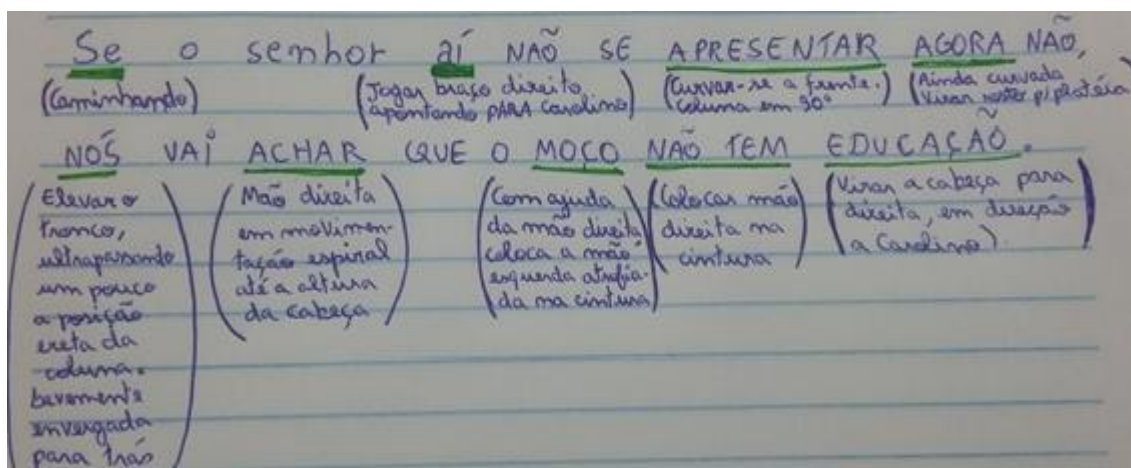 Se o senhor aí NAÕ SE APRESENTAR AGORA NÃO,
(Caminhando)
(Jogar braço direito,
apontando PARA Carolino)
(Curvar-se a frente.
Coluna em 90°)
(Ainda curvada
Virar rosto p/ platéia)
NOŚ VAI ACHAR QUE O MOÇO NÃO TEM EDUCAÇAÕ.
(Elevar o
tronco,
ultrapassando
um pouco
a posição
ereta da
coluna.
bevemente
envergada
para trás
(Mão direita
em movimen-
tação espiral
até a altura
da cabeça)
(Com ajuda
da mão direita
coloca a mão
esquerda atrofia-
da na cintura)
(Colocar mão
direita na
cintura)
(Virar a cabeça para
direita, em direção
a Carolino)